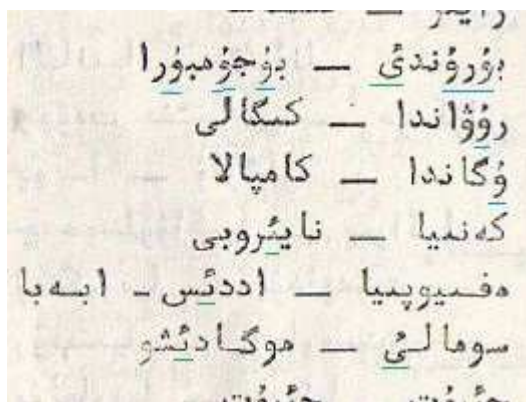 بۇرۇندئ — بۇجۇمبۇرا
رۇۋاندا — كىگالى
ۇگاندا — كامپالا
كەنىيا — نايئروبى
ەفىيوپىيا — اددئس ـ ابەبا
سومالئ — موگادئشو